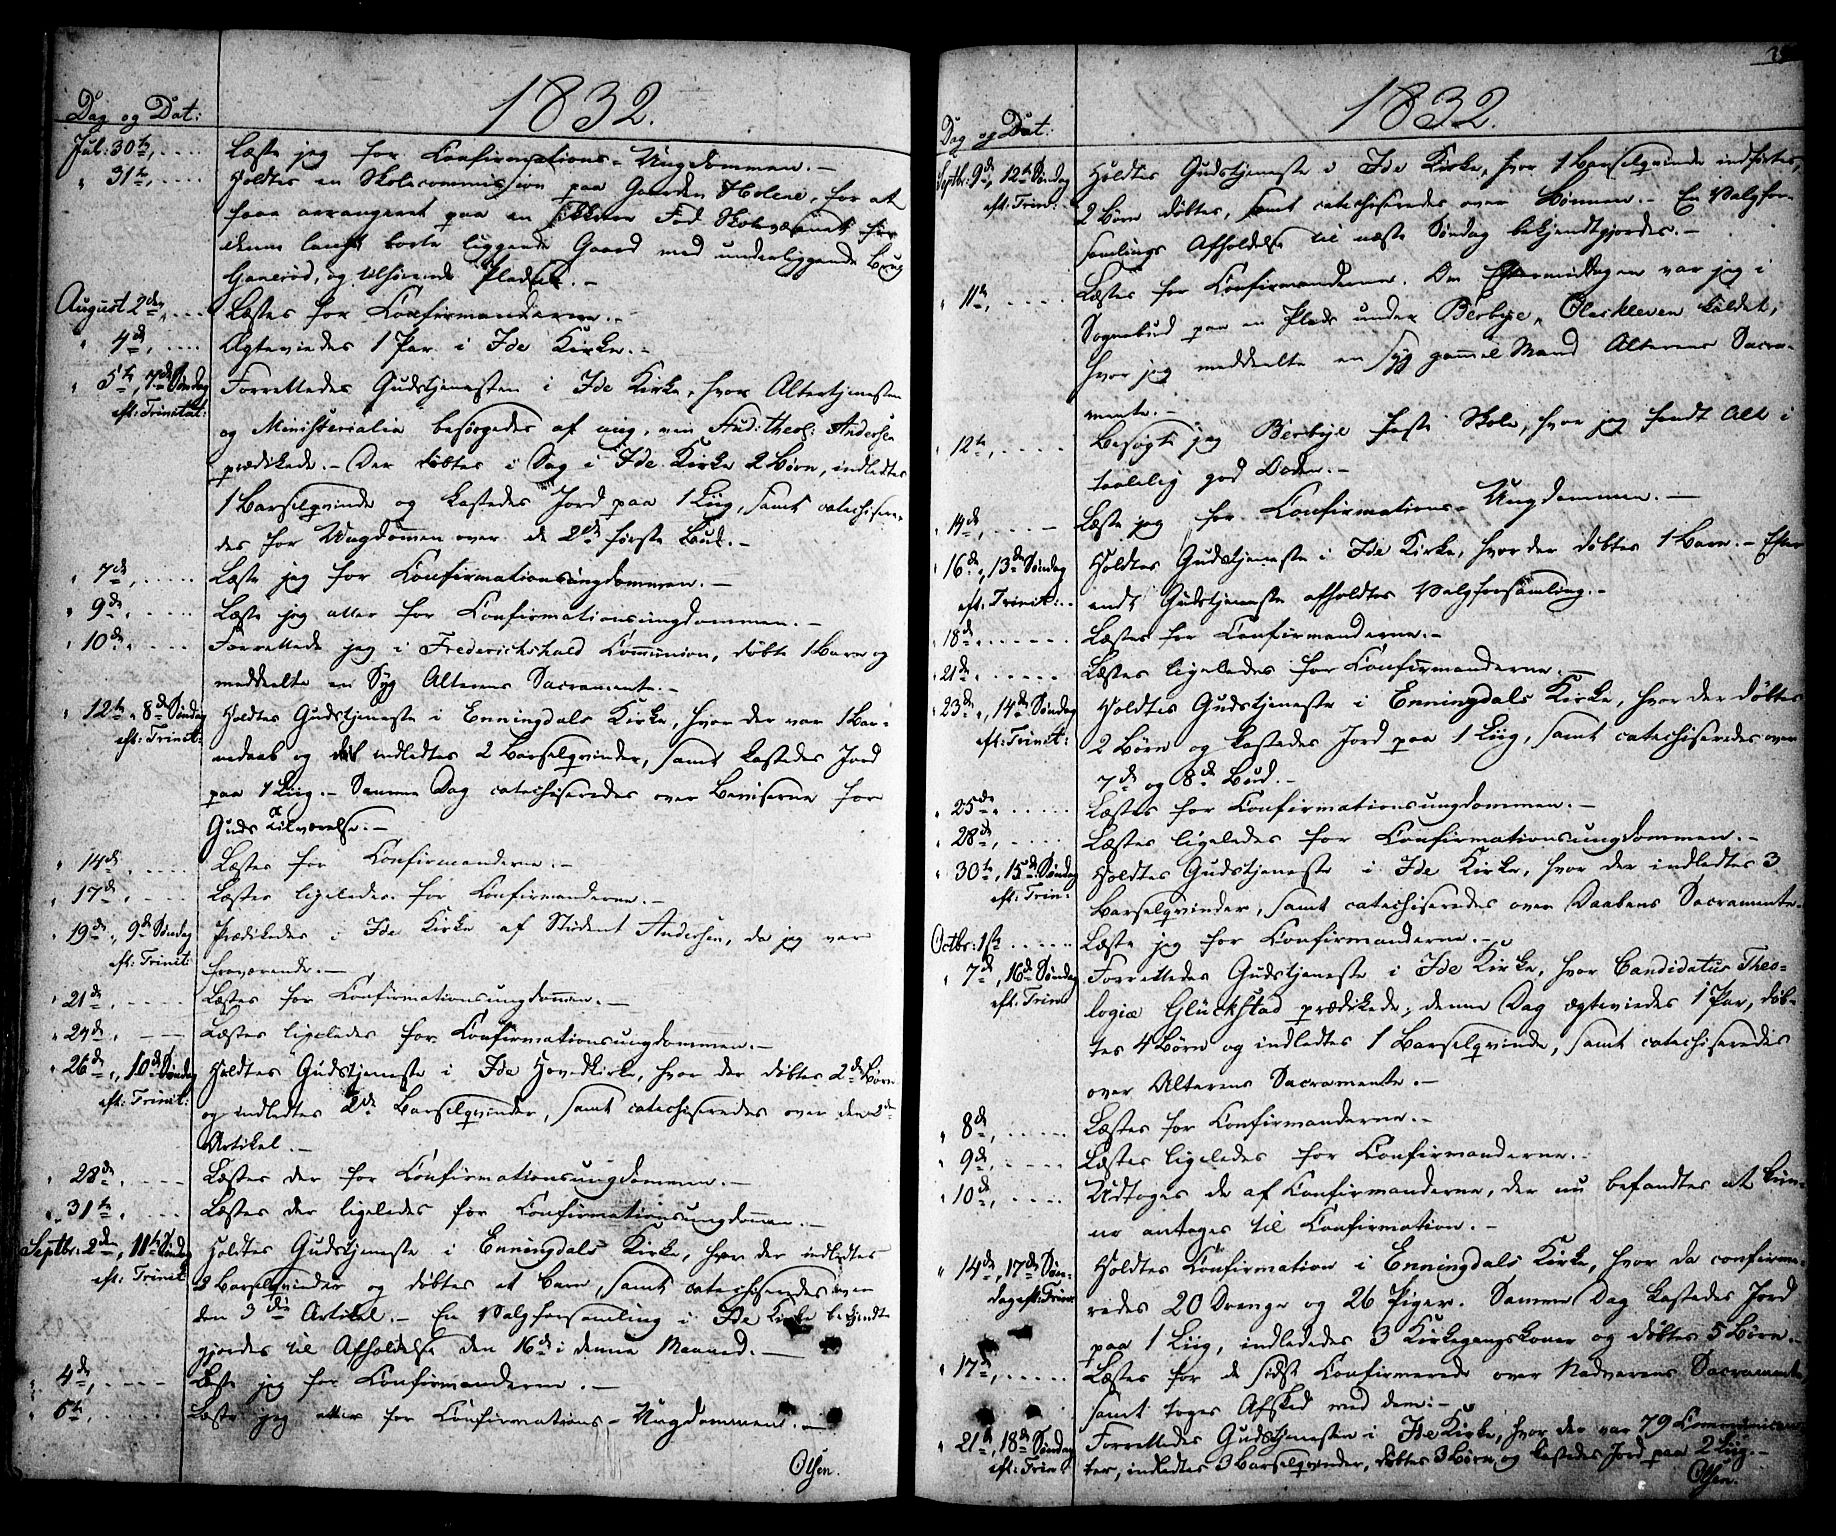 Dag og Dat:
1832.
Jul: 30te, .... Læste jeg for Confirmations-Ungdommen.-
" 31te, .... Holdtes en Skolecommission paa Gaarden Holene, for at
faae arrangeret paa en sikker Fod Skolevæsenet for
denne langt borte liggende Gaard med underliggende Brug
Ganerød, og tilhørende Pladser.-
August 2den, .... Læstes for Confirmanderne.-
" 4de, .... Ægteviedes 1 Par i Ide Kirke.-
" 5te, 7de Søndag Forrettedes Gudstjenesten i Ide Kirke, hvor Altertjenesten
eft: Trinitat: og Ministerialia besørgedes af mig, men Stud: theol: Andersen
prædikede.- Der døbtes i Dag i Ide Kirke 2 Børn, indledtes
1 Barselqvinde og kastedes Jord paa 1 Liig, samt catechisere-
des for Ungdomen over de 2de første Bud.-
" 7de, .... Læste jeg for Confirmationsungdommen.-
" 9de, .... Læste jeg atter for Confirmationsungdommen.-
" 10de, .... Forrettede jeg i Frederichshald Communion, døbte 1 Barn og
meddeelte en Syg Alterens Sacramente.-
" 12te, 8de Søndag Holdtes Gudstjeneste i Enningdals Kirke, hvor der var 1 Bar-
eft: Trinit: nedaab og indledtes 2 Barselqvinder, samt kastedes Jord
paa 1 Liig.- Samme Dag catechiseredes over Beviserne for
Guds Tilværelse.-
" 14de, .... Læstes for Confirmanderne.-
" 17de, .... Læstes ligeledes for Confirmanderne.-
" 19de, 9de Søndag Prædikedes i Ide Kirke af Student Andersen, da jeg var
eft: Trinit: fraværende.-
" 21de, .... Læstes for Confirmationsungdommen.-
" 24de, .... Læstes ligeledes for Confirmationsungdommen.-
" 26de, 10de Søndag Holdtes Gudstjeneste i Ide Hovedkirke, hvor der døbtes 2de Børn
eft: Trinit: og indledtes 2de Barselqvinder, samt catechiseredes over den 2den
Artikel.-
" 28de, .... Læstes der for Confirmationsungdommen.-
" 31te, .... Læstes der ligeledes for Confirmationsungdommen.-
Septbr: 2den, 11te Søndag Holdtes Gudstjeneste i Enningdals Kirke, hvor der indledtes
eft: Trinit: 2 Barselqvinder og døbtes et Barn, samt catechiseredes over
den 3die Artikel.- En Valgforsamling i Ide Kirke bekjendt-
gjordes til Afholdelse den 16de i denne Maaned.-
" 4de, .... Læste jeg for Confirmanderne.-
" 6te, .... Læste jeg atter for Confirmations-Ungdommen.-
Olsen.
Dag og Dat:
1832.
Septbr: 9de, 12te Søndag Holdtes Gudstjeneste i Ide Kirke, hvor 1 Barselqvinde indførtes,
eft: Trin: 2 Børn døbtes, samt catechiseredes over Bønnen.- En Valgfor-
samlings Afholdelse til næste Søndag bekjendtgjordes.-
" 11te, .... Læstes for Confirmanderne. Om Eftermiddagen var jeg i
Sognebud paa en Plads under Berbye, kaldet,
hvor jeg meddeelte en syg gammel Mand Alterens Sacra-
mente.-
" 12te, .... Besøgte jeg Berbye faste Skole, hvor jeg fandt Alt i
taalelig god Orden.-
" 14de, .... Læste jeg for Confirmations-Ungdommen.-
" 16de, 13de Søndag Holdtes Gudstjeneste i Ide Kirke, hvor der døbtes 1 Barn.- Efter
eft: Trinit: endt Gudstjeneste afholdtes Valgforsamling.-
" 18de, .... Læstes for Confirmanderne.-
" 21de, .... Læstes ligeledes for Confirmanderne.-
" 23de, 14de Søndag Holdtes Gudstjeneste i Enningdals Kirke, hvor der døbtes
eft: Trinit: 2 Børn og kastedes Jord paa 1 Liig, samt catechiseredes over
7de og 8de Bud.-
" 25de, .... Læstes for Confirmationsungdommen.-
" 28de, .... Læstes ligeledes for Confirmationsungdommen.-
" 30te, 15de Søndag Holdtes Gudstjeneste i Ide Kirke, hvor der indledtes 3
eft: Trin: Barselqvinder, samt catechiseredes over Daabens Sacramente.
Octbr: 1ste .... Læste jeg for Confirmanderne.-
" 7de, 16de Søndag Forrettedes Gudstjeneste i Ide Kirke, hvor Candidatus Theo-
eft: Trin: logiæ Glückstad prædikede; denne Dag ægteviedes 1 Par, døb-
tes 4 Børn og indledtes 1 Barselqvinde, samt catechiseredes
over Alterens Sacramente.-
" 8de, .... Læstes for Confirmanderne.-
" 9de, .... Læstes ligeledes for Confirmanderne.-
" 10de, .... Udtoges de af Confirmanderne, der nu befandtes at kun-
ne antages til Confirmation.-
" 14de, 17de Søn- Holdtes Confirmation i Enningdals Kirke, hvor da confirme-
dag eft: Trin: redes 20 Drenge og 26 Piger. Samme Dag kastedes Jord
paa 1 Liig, indledtes 3 Kirkegangskoner og døbtes 5 Børn.-
" 17de, .... Læstes for de sidst Confirmerede over Nadverens Sacramente,
samt toges Afsked med dem.-
" 21de, 18de Søndag Forrettedes Gudstjenesten i Ide Kirke, hvor der var 79 Communican-
eft: Trin: ter, indledtes 3 Barselqvinder, døbtes 3 Børn og kastedes Jord paa 2 Liig.-
Olsen.